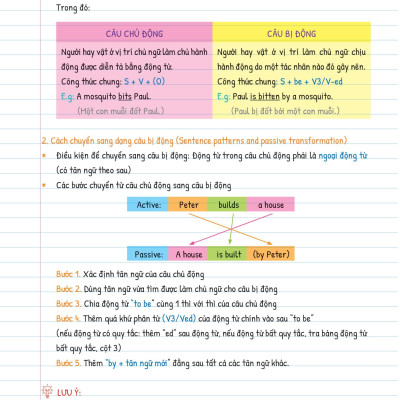 Trong đó:
CÂU CHỦ ĐỘNG
Người hay vật ở vị trí chủ ngữ làm chủ hành
động được diễn tả bằng động từ.
Công thức chung: S + V + (O)
E.g: A mosquito bits Paul.
(Một con muỗi đốt Paul.)
CÂU BỊ ĐỘNG
Người hay vật ở vị trí làm chủ ngữ chịu
hành động do một tác nhân nào đó gây nên.
Công thức chung: S + be + V3/V-ed
E.g: Paul is bitten by a mosquito.
(Paul bị đốt bởi một con muỗi.)
2. Cách chuyển sang dạng câu bị động (Sentence patterns and passive transformation)
* Điều kiện để chuyển sang câu bị động: Động từ trong câu chủ động phải là ngoại động từ
(có tân ngữ theo sau)
* Các bước chuyển từ câu chủ động sang câu bị động
Active: Peter builds a house
Passive: A house is built (by Peter)
Bước 1. Xác định tân ngữ của câu chủ động
Bước 2. Dùng tân ngữ vừa tìm được làm chủ ngữ cho câu bị động
Bước 3. Chia động từ "to be" cùng 1 thì với thì của câu chủ động
Bước 4. Thêm quá khứ phân từ (V3/Ved) của động từ chính vào sau "to be"
(nếu động từ có quy tắc: thêm "ed" sau động từ, nếu động từ bất quy tắc, tra bảng động từ
bất quy tắc, cột 3)
Bước 5. Thêm "by + tân ngữ mới" đằng sau tất cả các tân ngữ khác.
LƯU Ý: